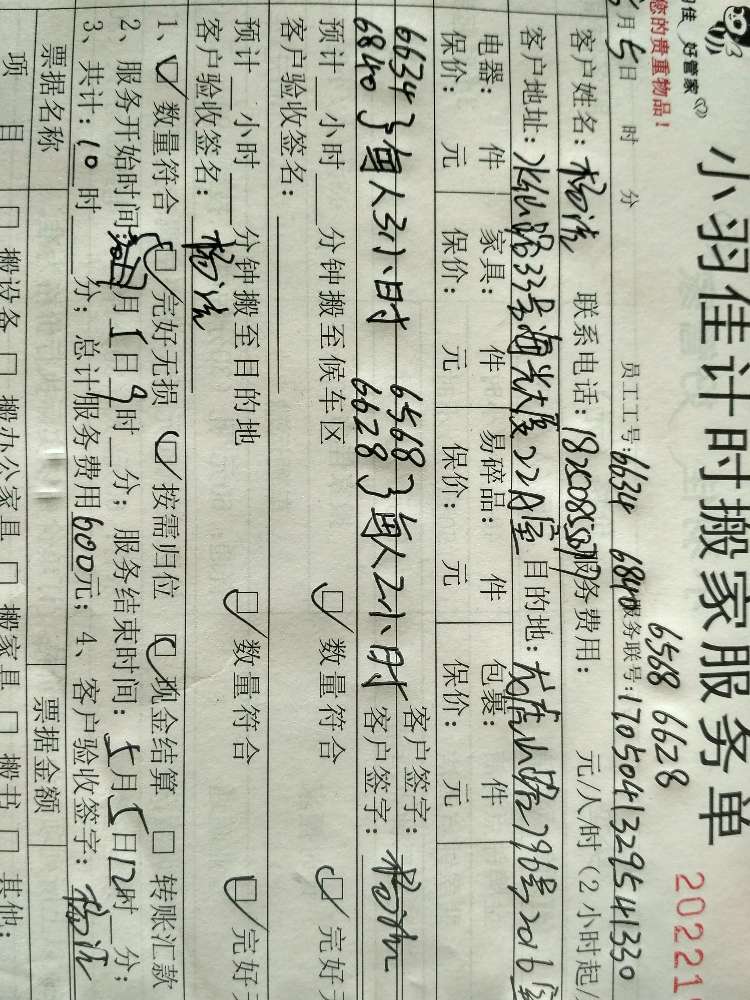 佳 好管家
您的贵重物品！
小羽佳计时搬家服务单
202211
6568 6628
月5日 时 分 员工工号：6634 6840 服务联号：1705041329541330
客户姓名：杨流 联系电话： 服务费用： 元/人/时（2小时起
客户地址： 路33号海光大厦22A室 目的地： 山路796号2016室
电器： 件 家具： 件 易碎品： 件 包裹： 件
保价： 元 保价： 元 保价： 元 保价： 元
6634 6568 客户签字：
6840 了每人3小时 6628 了每人2小时 客户签字：
预计 小时 分钟搬至候车区 数量符合 完好无
客户验收签名：
预计 小时 分钟搬至目的地 数量符合 完好无
客户验收签名：杨流
1、 数量符合 完好无损 按需归位 现金结算 转账汇款
2、服务开始时间： 月5日9时 分；服务结束时间：5月5日12时 分；
3、共计：10时 分；总计服务费用600元；4、客户验收签字：杨流
票据名称 票据金额
项目 搬设备 搬办公家具 搬家具 搬书 其他：